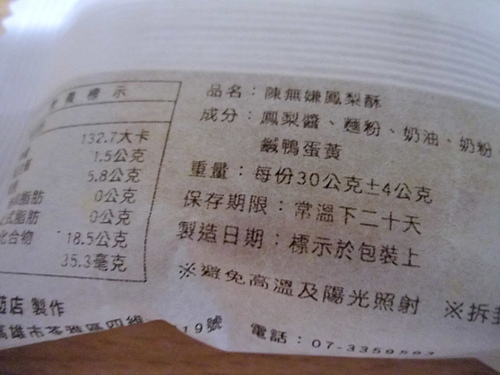 養標示
132.7大卡
1.5公克
5.8公克
脂肪 0公克
式脂肪 0公克
化合物 18.5公克
35.3毫克
品名：陳無嫌鳳梨酥
成分：鳳梨醬、麵粉、奶油、奶粉
鹹鴨蛋黃
重量：每份30公克±4公克
保存期限：常溫下二十天
製造日期：標示於包裝上
※避免高溫及陽光照射 ※拆封
店 製作
高雄市苓雅區四維 19號
電話：07-335